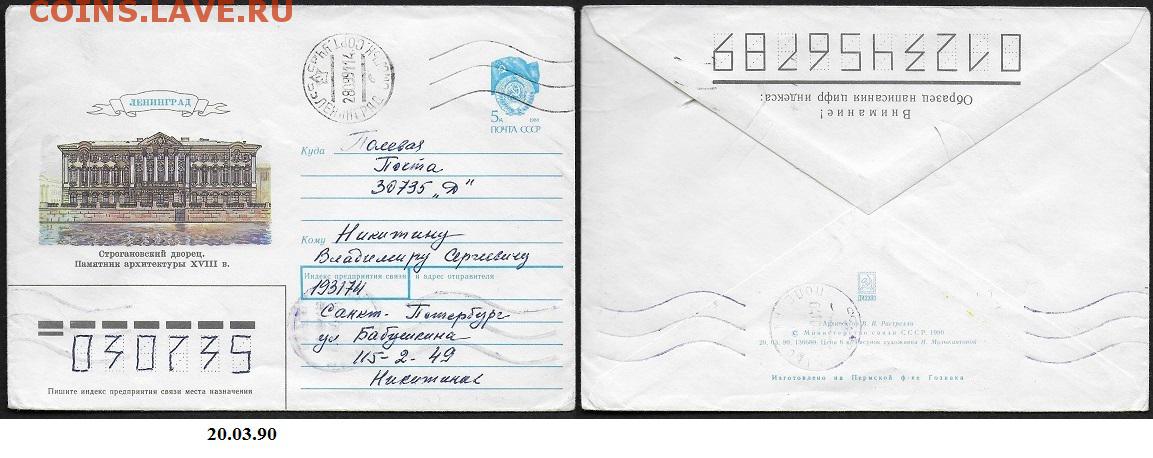 COINS.LAVE.RU
ЛЕНИНГРАД
Строгановский дворец.
Памятник архитектуры XVIII в.
030735
Пишите индекс предприятия связи места назначения
ЛЕНИНГРАД
5к
ПОЧТА СССР
Куда Полевая
Почта
30735 „Д"
Кому Никитину
Владимиру Сергеевичу
Индекс предприятия связи и адрес отправителя
193174
Санкт-Петербург
ул Бабушкина
115-2-49
0123456789
Образец написания цифр индекса:
Внимание!
В. В. Растрелли
© Министерство связи СССР, 1990
20. 03. 90.
Изготовлено на Пермской ф-ке Гознака
20.03.90